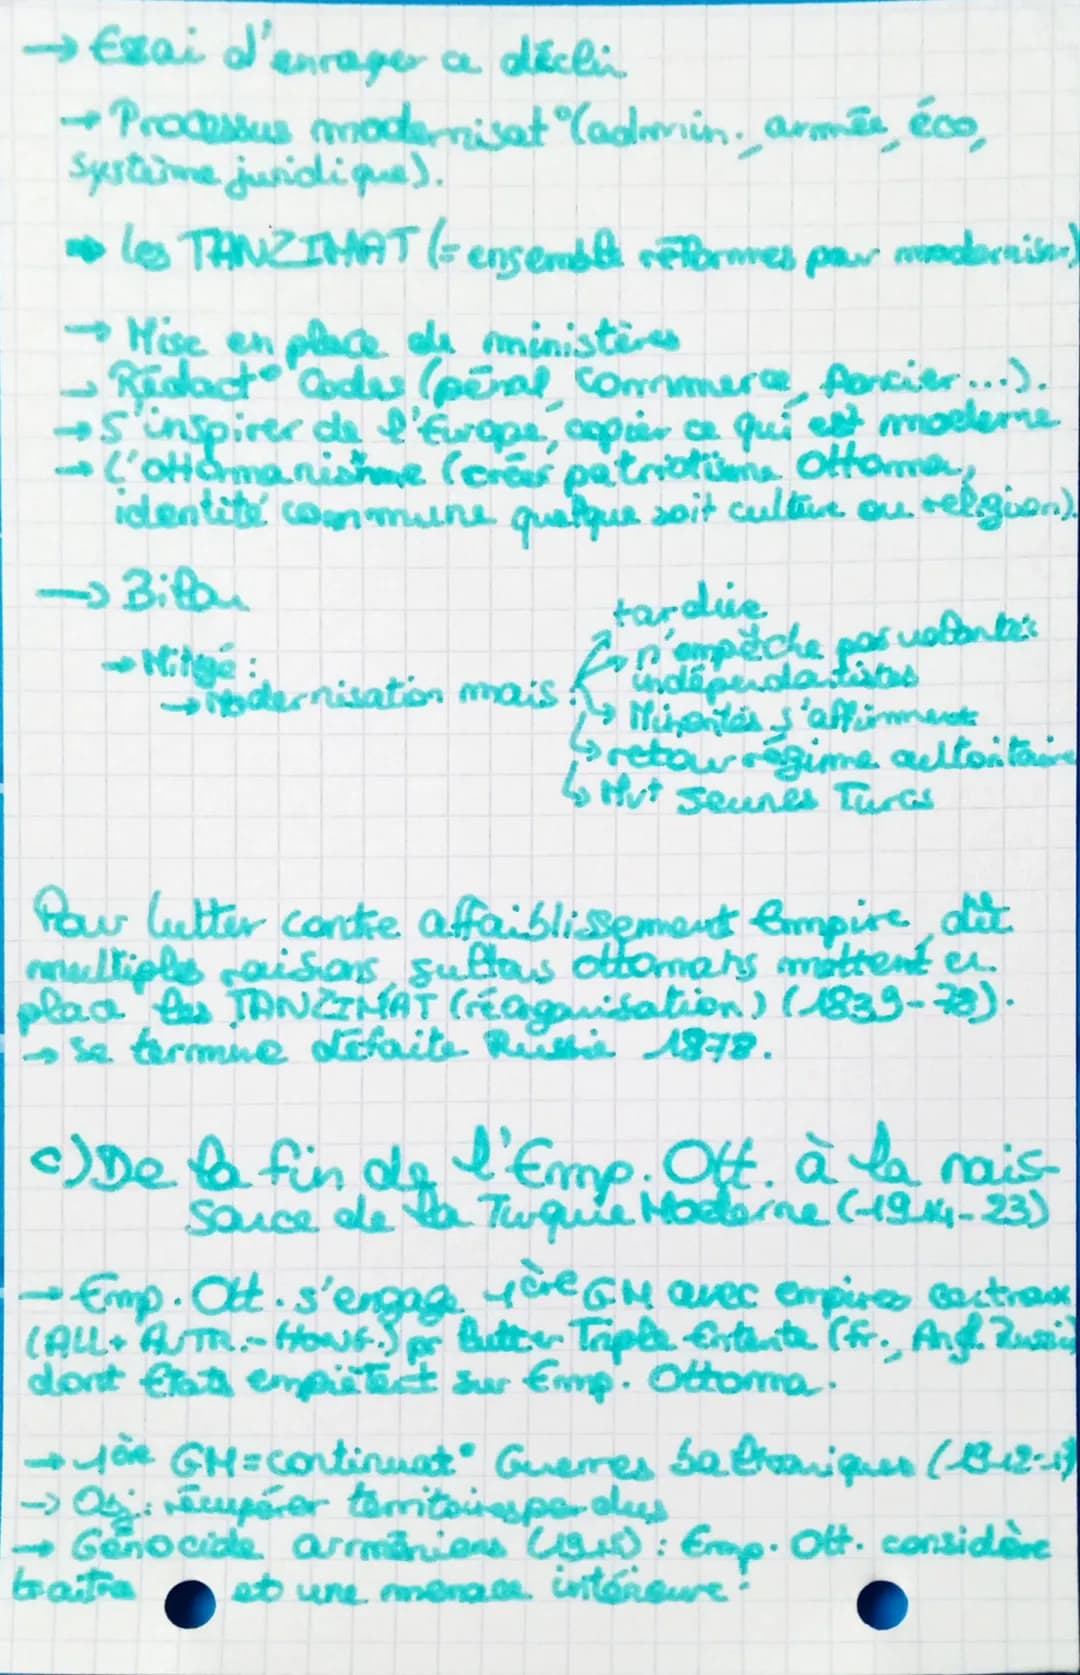 → Essai d'enrayer ce déclin
→ Processus modernisat°(admin., armée, éco,
système juridique).
➡ les TANZIMAT (= ensemble réformes pour moderniser)
→ Mise en place de ministères
→ Rédact° Codes (pénal, commerce, foncier...).
→ S'inspirer de l'Europe, copier ce qui est moderne
→ L'ottomanisme (créer patriotisme Ottoman,
identité commune quelque soit culture ou religion).
→ Bilan
→ Mitigé :
→ Modernisation mais :
tardive
↳ n'empêche pas volontés
indépendantistes
↳ Minorités s'affirment
↳ retour régime autoritaire
↳ Mvt Jeunes Turcs
Pour lutter contre affaiblissement Empire, dût
multiples raisons sultans ottomans mettent en
place les TANZIMAT (réorganisation) (1839-78).
→ Se termine défaite Russie 1878.
c) De la fin de l'Emp. Ott. à la nais-
sance de la Turquie Moderne (1914-23)
→ Emp. Ott. s'engage 1ère GM avec empires centraux
(ALL + AUTR.-HONG.) pr lutter Triple Entente (Fr., Angl. Russie)
dont États empiètent sur Emp. Ottoman.
→ 1ère GM = continuat° Guerres balkaniques (1912-13)
→ Obj. : récupérer territoires perdus
→ Génocide arméniens (1915) : Emp. Ott. considère
traitre et une menace intérieure.